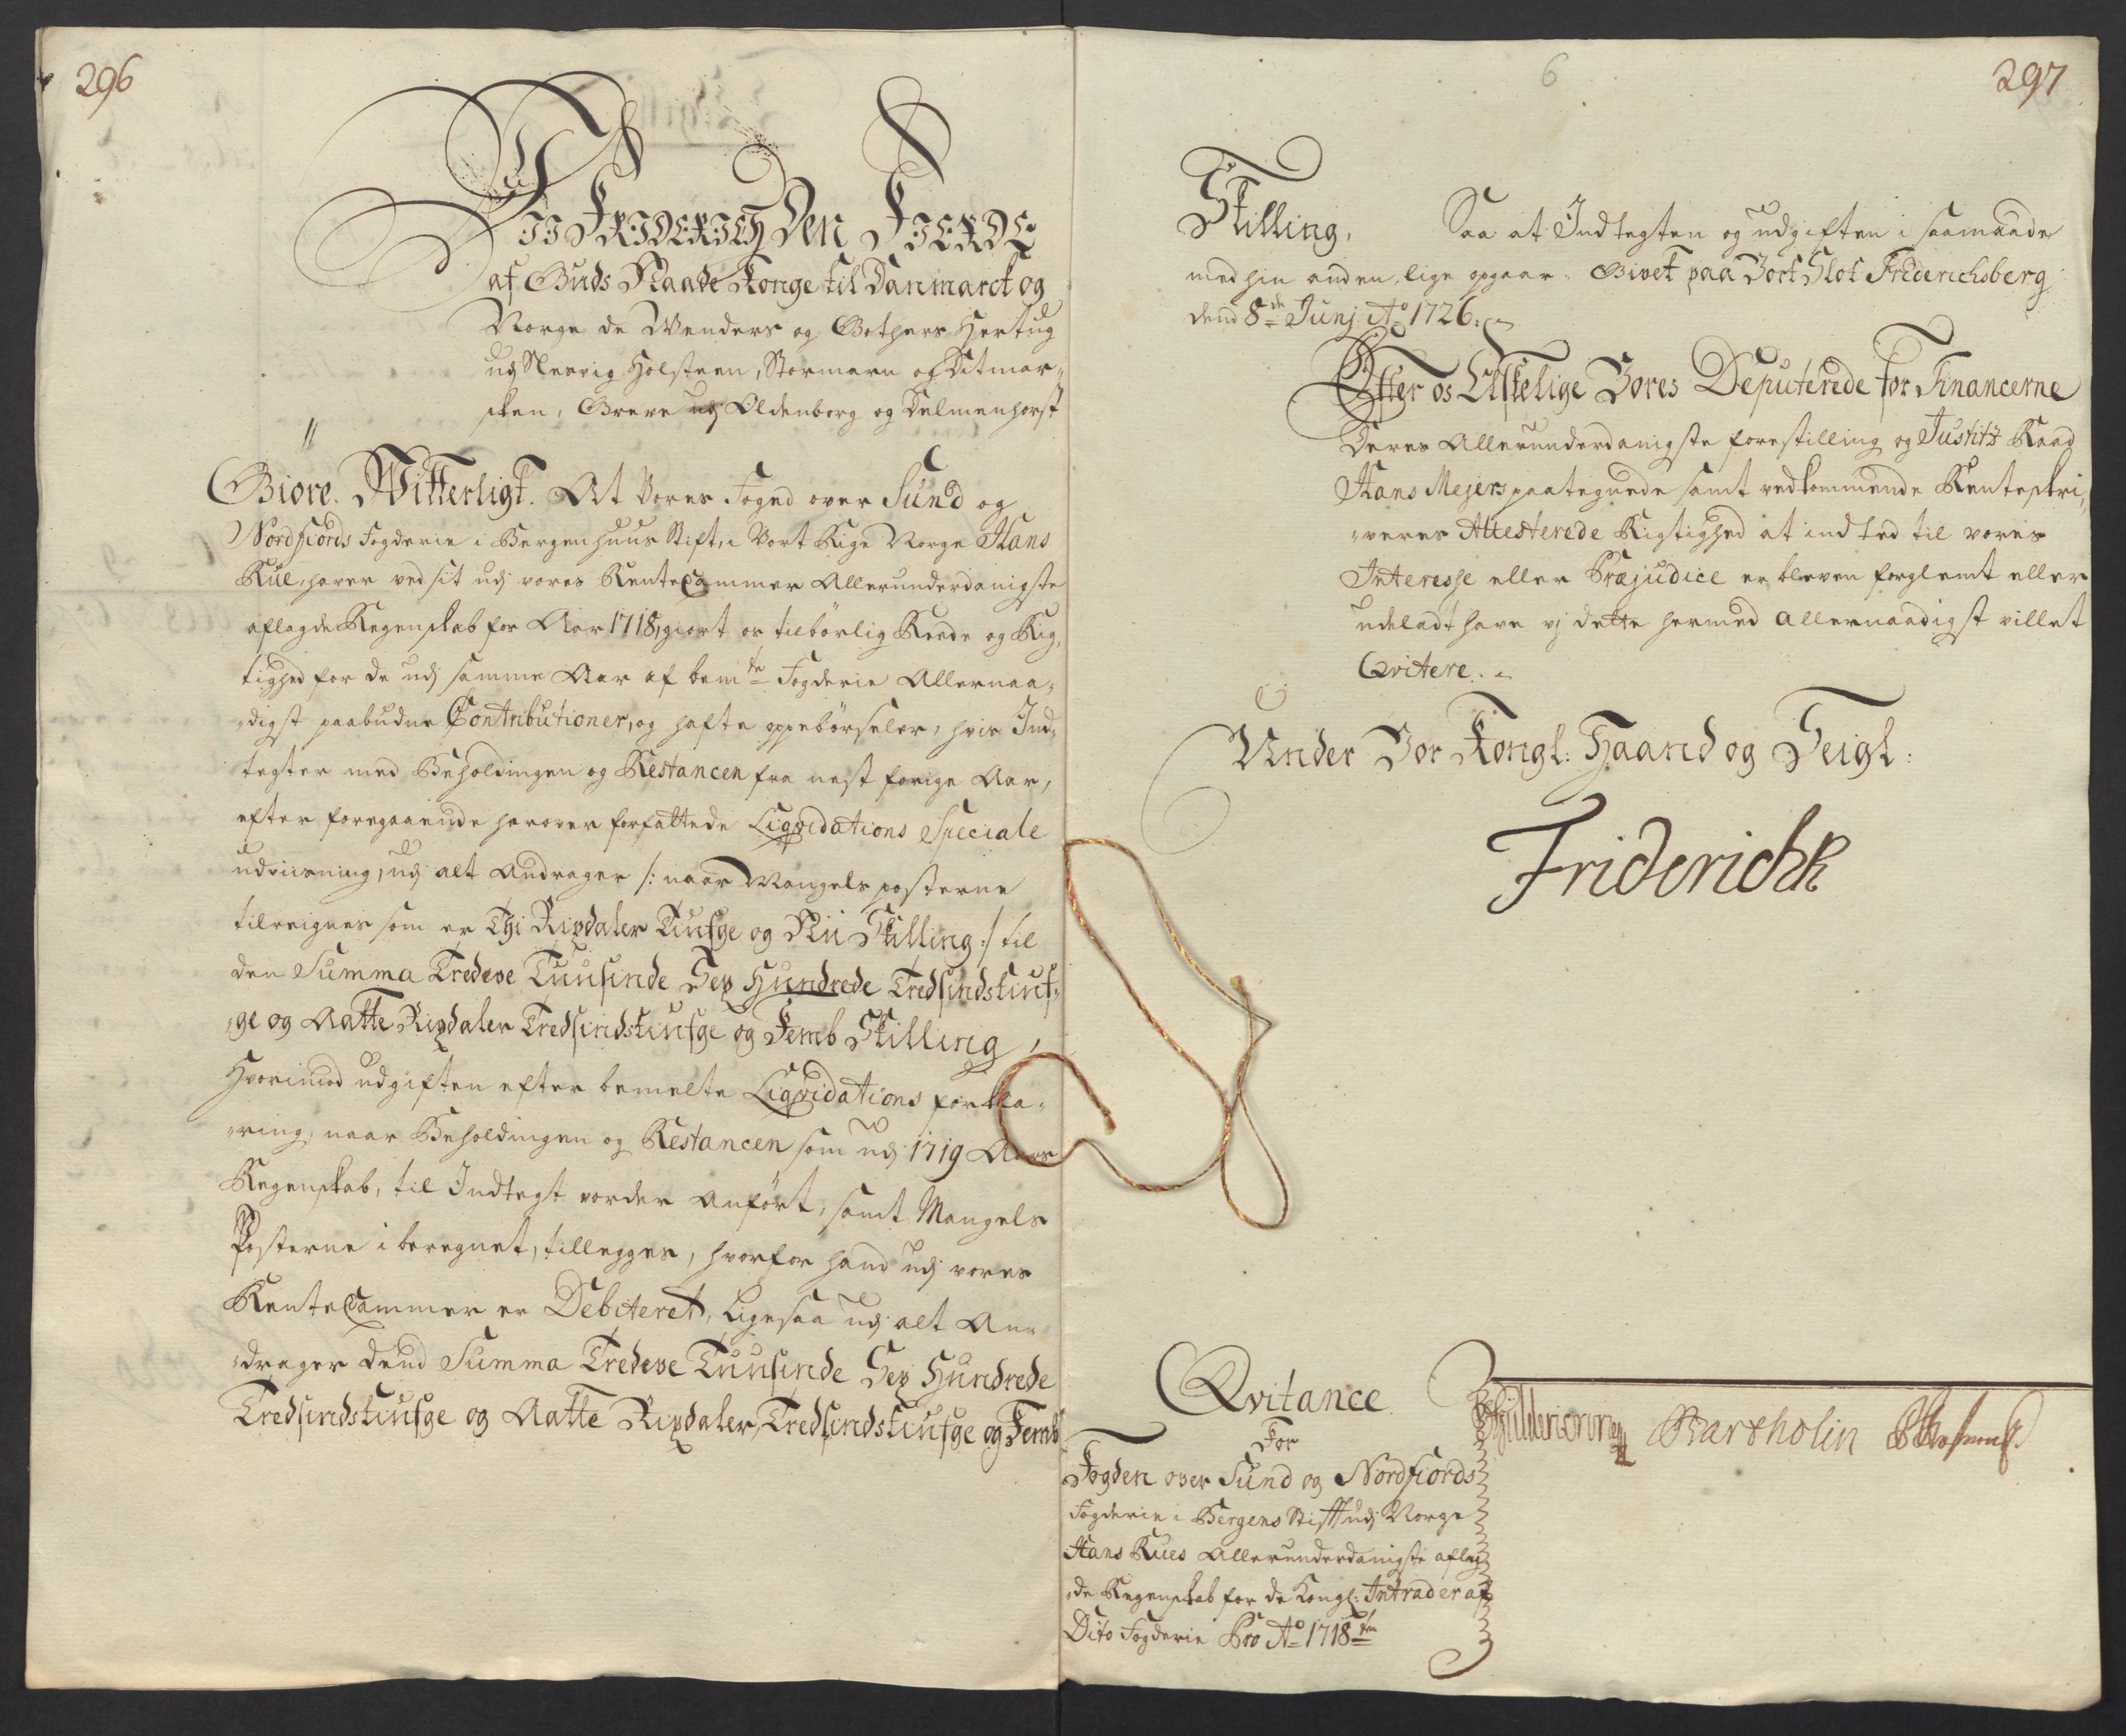 296
Vii Friderich Den Fierde
af Guds Naade Konge til Danmarck og
Norge de Wenders og Gothers Hertug
udj Slesvig Holsteen, Stormarn og Ditmar¬
sken, Greve udj Oldenborg og Delmenhorst
Giøre Witterligt. At Vores Foged over Sund og
Nordfiords Fogderie i Bergenhuus Stift, i Vort Rige Norge Hans
Rue, haver ved sit udj vores RenteCammer Allerunderdanigste
aflagde Regenskab for Aar 1718, giort os tilbørlig Reede og Rig¬
tighed for de udj samme Aar af bemte Fogderie Allernaa¬
digst paabudne Contributioner, og hafte oppebørseler, hvis Ind¬
tegter med Beholdingen og Restancen fra nest forige Aar,
efter foregaaende herover forfattede Liqvidations Speciale
udviisning, udj alt Andrager /: naar Mangels posterne
tilreignes som er Thi Rixdaler Tiufge og Nii Skilling :/ til
den Summa Tredeve Tuusinde Sex Hundrede Tredsindstiuf¬
ge og Aatte Rixdaler Tredsindstiufge og Femb Skilling,
Hvorimod udgiften efter bemelte Liqvidations forkla¬
ring, naar Beholdingen og Restancen som udj 1719 Aars
Regenskab, til Indtegt vorder Anført, samt Mangels
Posterne iberegnet, tillegges, hvorfor hand udj vores
RenteCammer er Debiteret, Ligesaa udj alt An¬
drager dend Summa Tredeve Tuusinde Sex Hundrede
Tredsindstiufge og Aatte Rixdaler, Tredsindstiufge og Femb
6
297
Skilling, Saa at Indtegten og udgiften i saamaade
med hin anden lige opgaar. Givet paa Vort Slot Friderichsberg
dend 8de Junj Ao 1726.
Efter os Elskelige Vores Deputerede for Financerne
Deres Allerunderdanigste forestilling og Justitz Raad
Hans Mejers paategnede samt vedkommende Renteskri¬
veres Attesterede Rigtighed at intet til vores
Interesse eller Præjudice er bleven forglemt eller
udeladt have vj dette hermed Allernaadigst villet
Qvitere.
Under Vor Kongl: Haand og Seigl:
Friderich R
Qvitance
For
Fogden over Sund og Nordfiords
Fogderie i Bergens Stift udj Norge
Hans Rues Allerunderdanigste aflag¬
de Regenskab for de Kongl: Intrader af
Dito Fogderie Pro Ao 1718ten
Bartholin